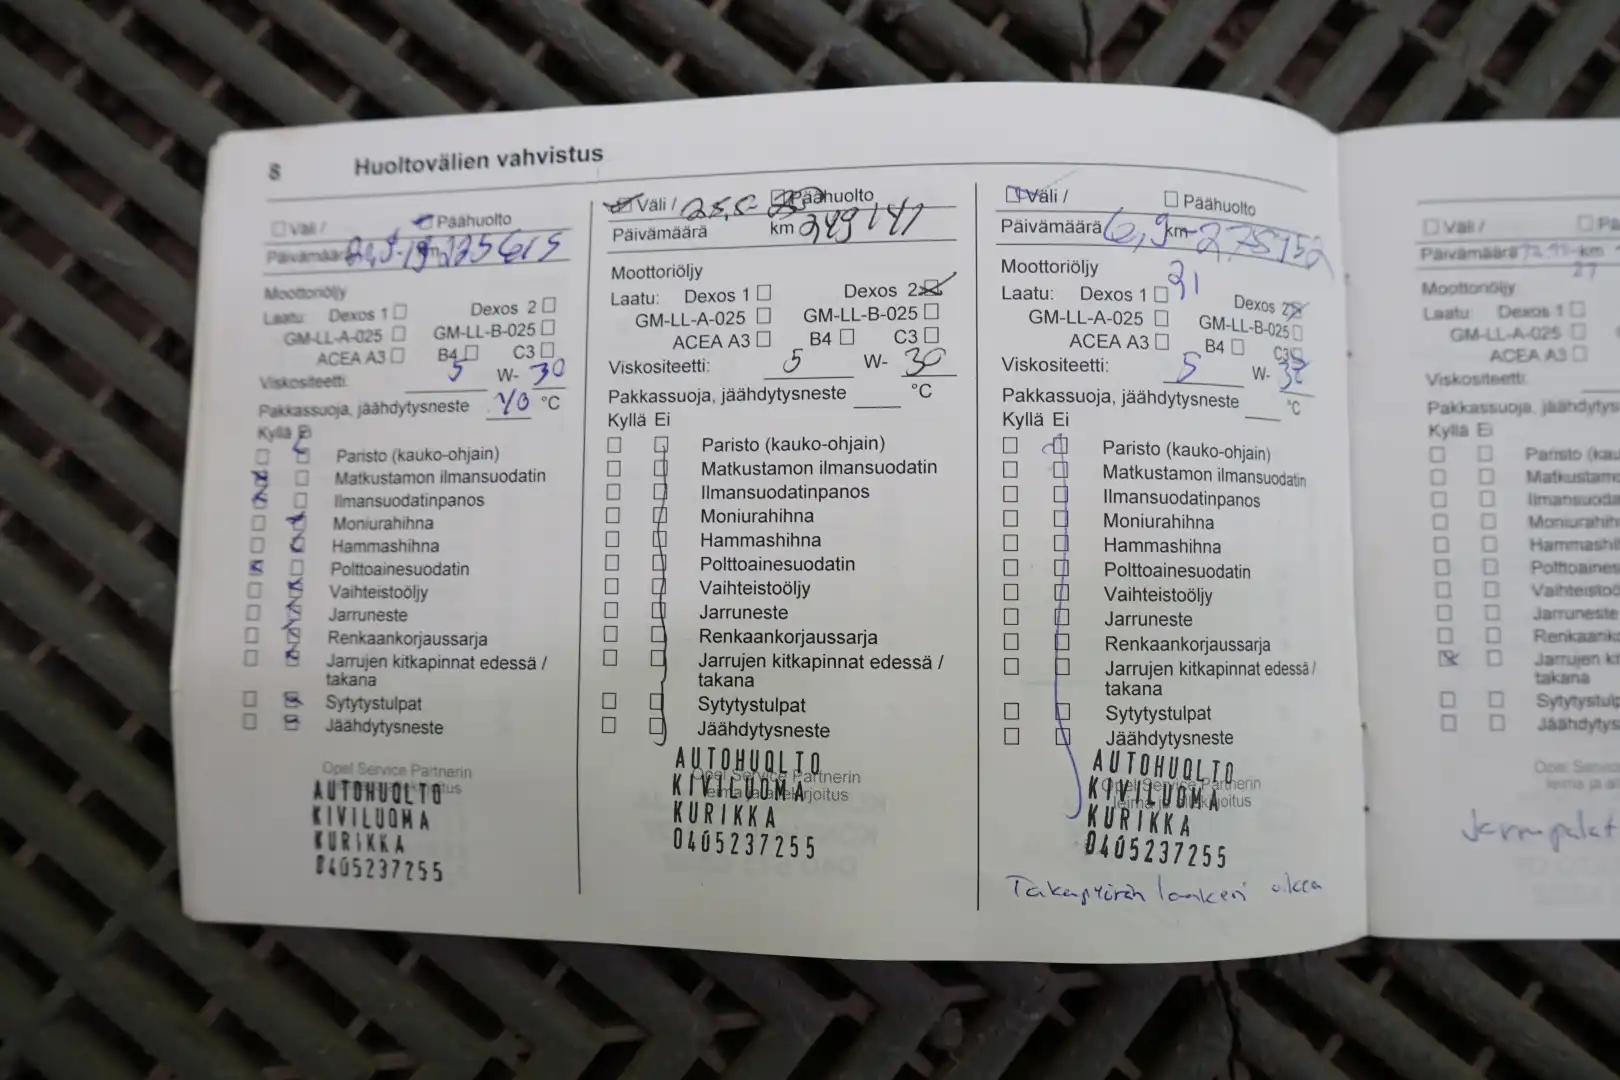 8 Huoltovälien vahvistus
Väli / Päähuolto
Päivämäärä km 225615
Moottoriöljy
Laatu: Dexos 1 Dexos 2
GM-LL-A-025 GM-LL-B-025
ACEA A3 B4 C3
Viskositeetti: 5 W- 30
Pakkassuoja, jäähdytysneste 40 °C
Kyllä Ei
Paristo (kauko-ohjain)
Matkustamon ilmansuodatin
Ilmansuodatinpanos
Moniurahihna
Hammashihna
Polttoainesuodatin
Vaihteistoöljy
Jarruneste
Renkaankorjaussarja
Jarrujen kitkapinnat edessä /
takana
Sytytystulpat
Jäähdytysneste
Opel Service Partnerin
AUTOHUOLTO
KIVILUOMA
KURIKKA
0405237255
Väli / 25,5- Päähuolto
Päivämäärä km 249141
Moottoriöljy
Laatu: Dexos 1 Dexos 2
GM-LL-A-025 GM-LL-B-025
ACEA A3 B4 C3
Viskositeetti: 5 W- 30
Pakkassuoja, jäähdytysneste °C
Kyllä Ei
Paristo (kauko-ohjain)
Matkustamon ilmansuodatin
Ilmansuodatinpanos
Moniurahihna
Hammashihna
Polttoainesuodatin
Vaihteistoöljy
Jarruneste
Renkaankorjaussarja
Jarrujen kitkapinnat edessä /
takana
Sytytystulpat
Jäähdytysneste
AUTOHUOLTO
Opel Service Partnerin
KIVILUOMA
leima ja allekirjoitus
KURIKKA
0405237255
Väli / Päähuolto
Päivämäärä 6,9 km 275152
21
Moottoriöljy
Laatu: Dexos 1 Dexos 2
GM-LL-A-025 GM-LL-B-025
ACEA A3 B4 C3
Viskositeetti: 5 W- 30
Pakkassuoja, jäähdytysneste °C
Kyllä Ei
Paristo (kauko-ohjain)
Matkustamon ilmansuodatin
Ilmansuodatinpanos
Moniurahihna
Hammashihna
Polttoainesuodatin
Vaihteistoöljy
Jarruneste
Renkaankorjaussarja
Jarrujen kitkapinnat edessä /
takana
Sytytystulpat
Jäähdytysneste
AUTOHUOLTO
Opel Service Partnerin
KIVILUOMA
leima ja allekirjoitus
KURIKKA
0405237255
Takapyörän laakeri oikea
Väli /
Päivämäärä km
Moottoriöljy
Laatu: Dexos 1
GM-LL-A-025
ACEA A3
Viskositeetti:
Pakkassuoja, jäähdytys
Kyllä Ei
Paristo (kau
Matkustamo
Ilmansuoda
Moniurahih
Hammashi
Polttoaines
Vaihteistoö
Jarruneste
Renkaanko
Jarrujen ki
takana
Sytytystulp
Jäähdytys
Opel Servic
leima ja al
Jarrupalat